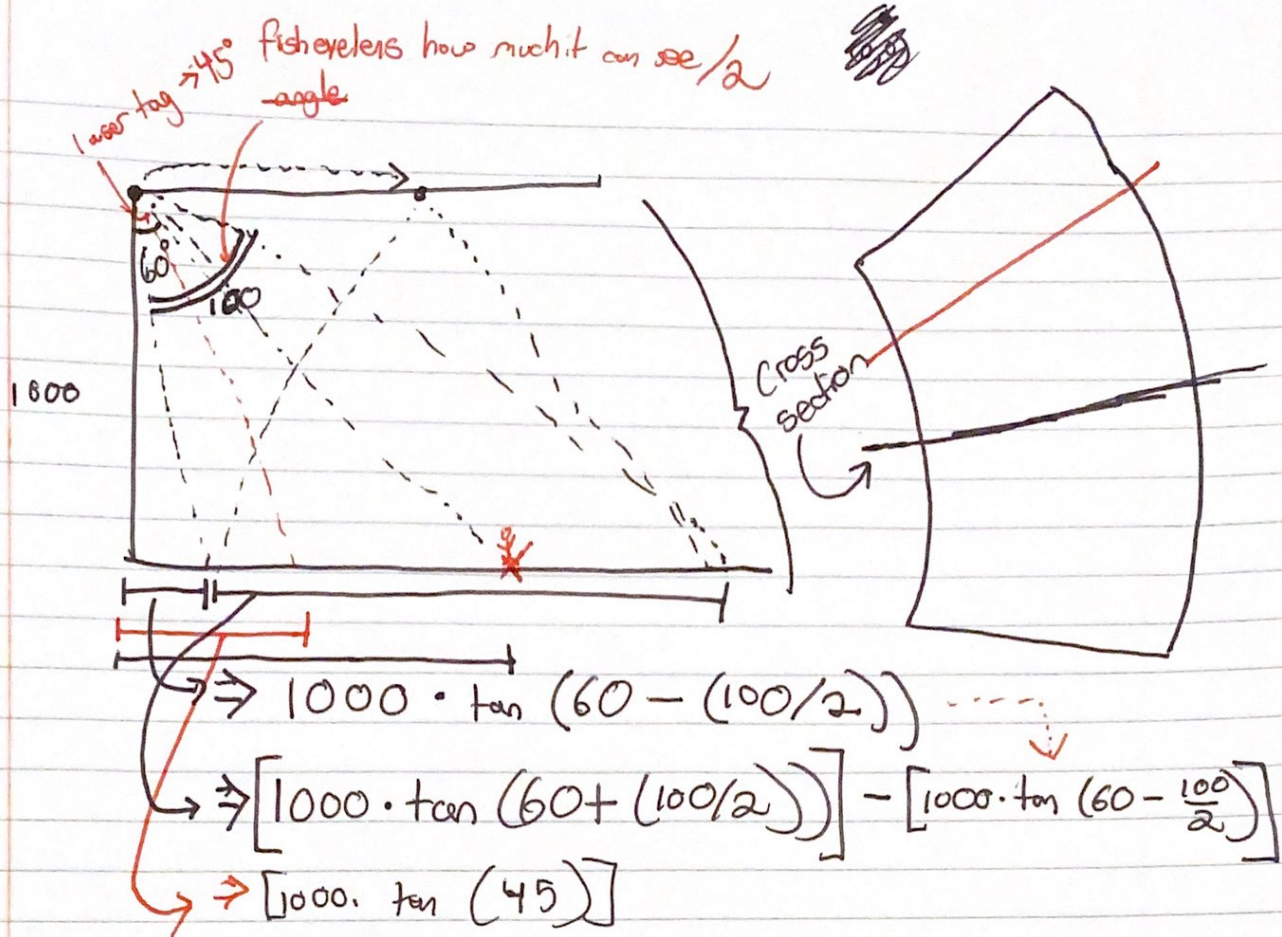 fisheyelens how much it can see/2
laser tag → 45°
angle
60°
100
1000
Cross
section
⇒ 1000 · tan (60 - (100/2))
⇒ [1000 · tan (60+ (100/2))] - [1000 · tan (60 - 100/2)]
⇒ [1000 . tan (45)]